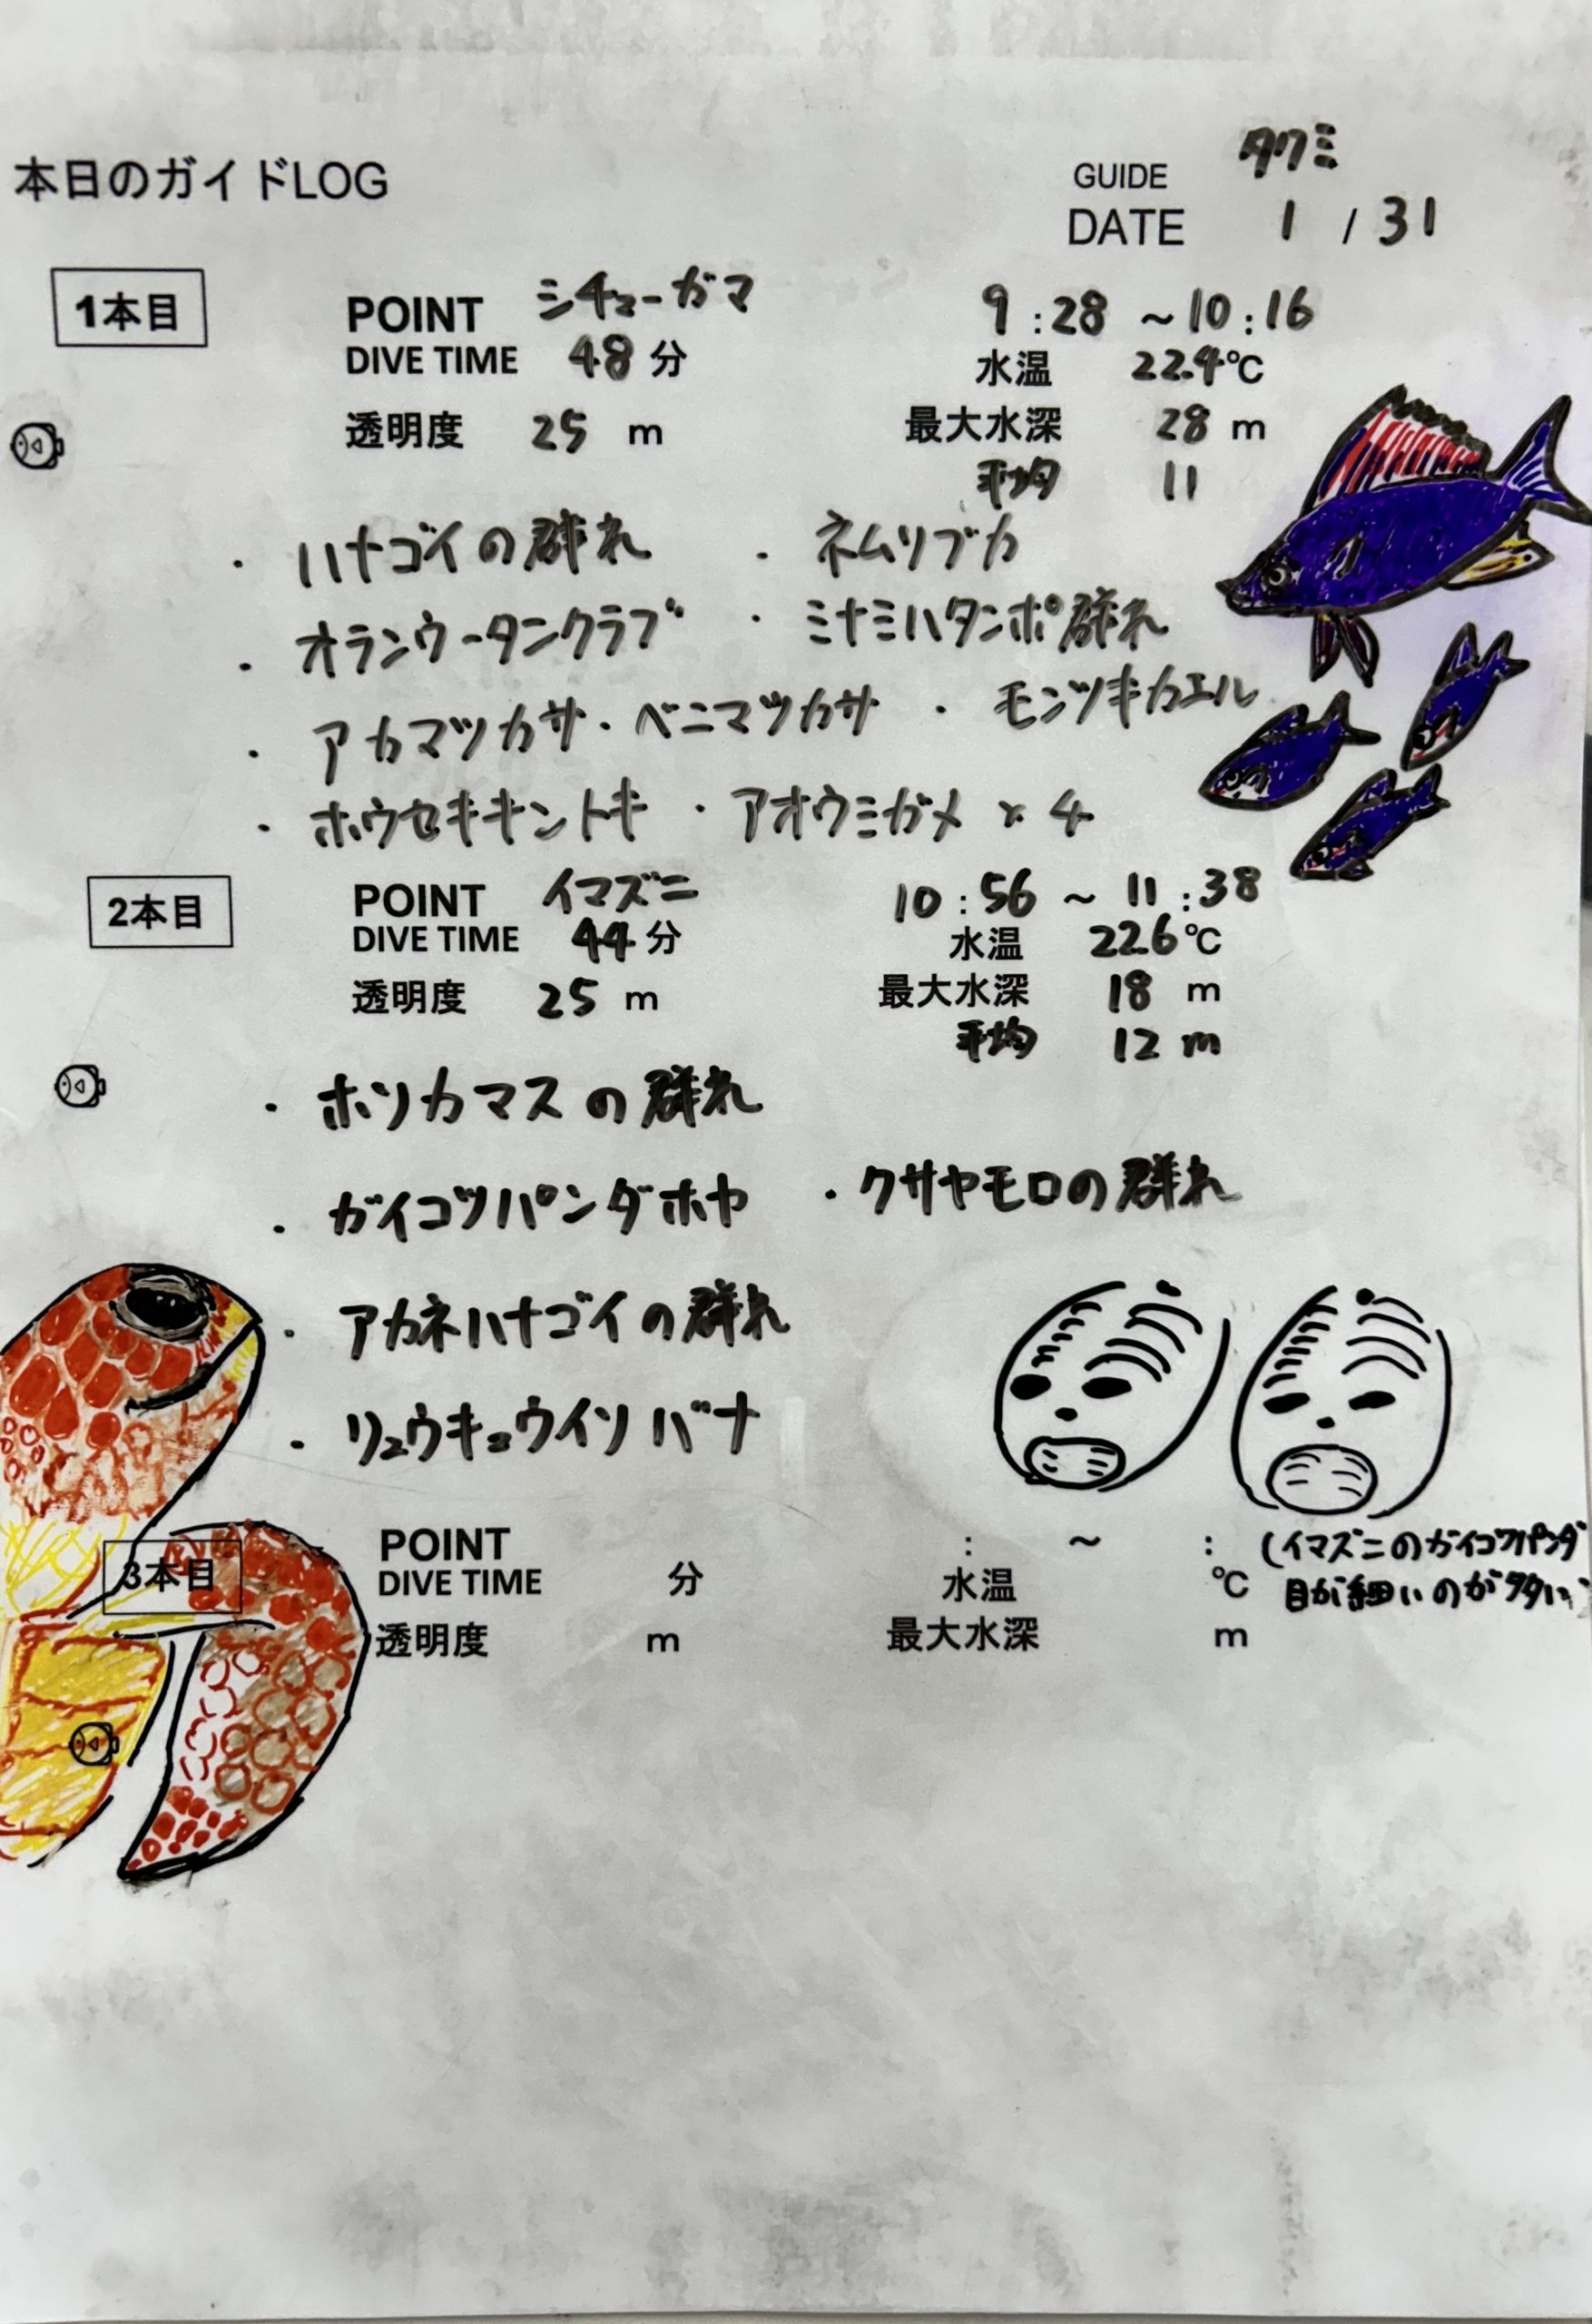 本日のガイドLOG
GUIDE タクミ
DATE 1 / 31
1本目
POINT シチューガマ 9:28 ~ 10:16
DIVE TIME 48 分 水温 22.4℃
透明度 25 m 最大水深 28 m
平均 11
・ハナゴイの群れ ・ネムリブカ
・オランウータンクラブ ・ミナミハタンポ群れ
・アカマツカサ・ベニマツカサ ・モンツキカエル
・ホウセキキントキ ・アオウミガメ×4
2本目
POINT イマズニ 10:56 ~ 11:38
DIVE TIME 44 分 水温 22.6℃
透明度 25 m 最大水深 18 m
平均 12 m
・ホソカマスの群れ
・ガイコツパンダホヤ ・クサヤモロの群れ
・アカネハナゴイの群れ
・リュウキュウイソバナ
3本目
POINT : ~ :
DIVE TIME 分 水温 ℃
透明度 m 最大水深 m
(イマズニのガイコツパンダ
目が細いのが多い)